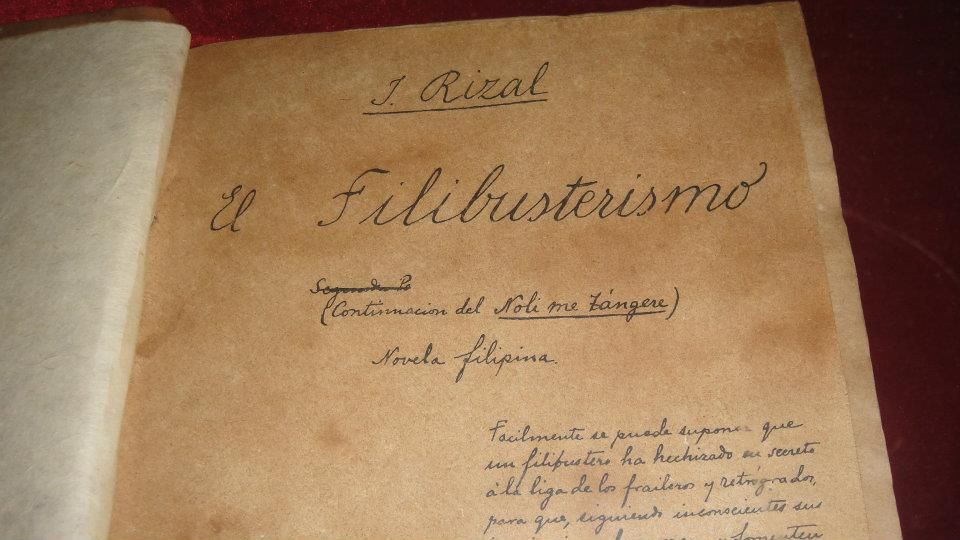 J. Rizal
El Filibusterismo
Segunda Pa
(Continuacion del Noli me Tángere)
Novela filipina.
Facilmente se puede suponer que
un filibustero ha hechizado en secreto
á la liga de los fraileros y retrógrados,
para que, siguiendo inconscientes sus
fomenten